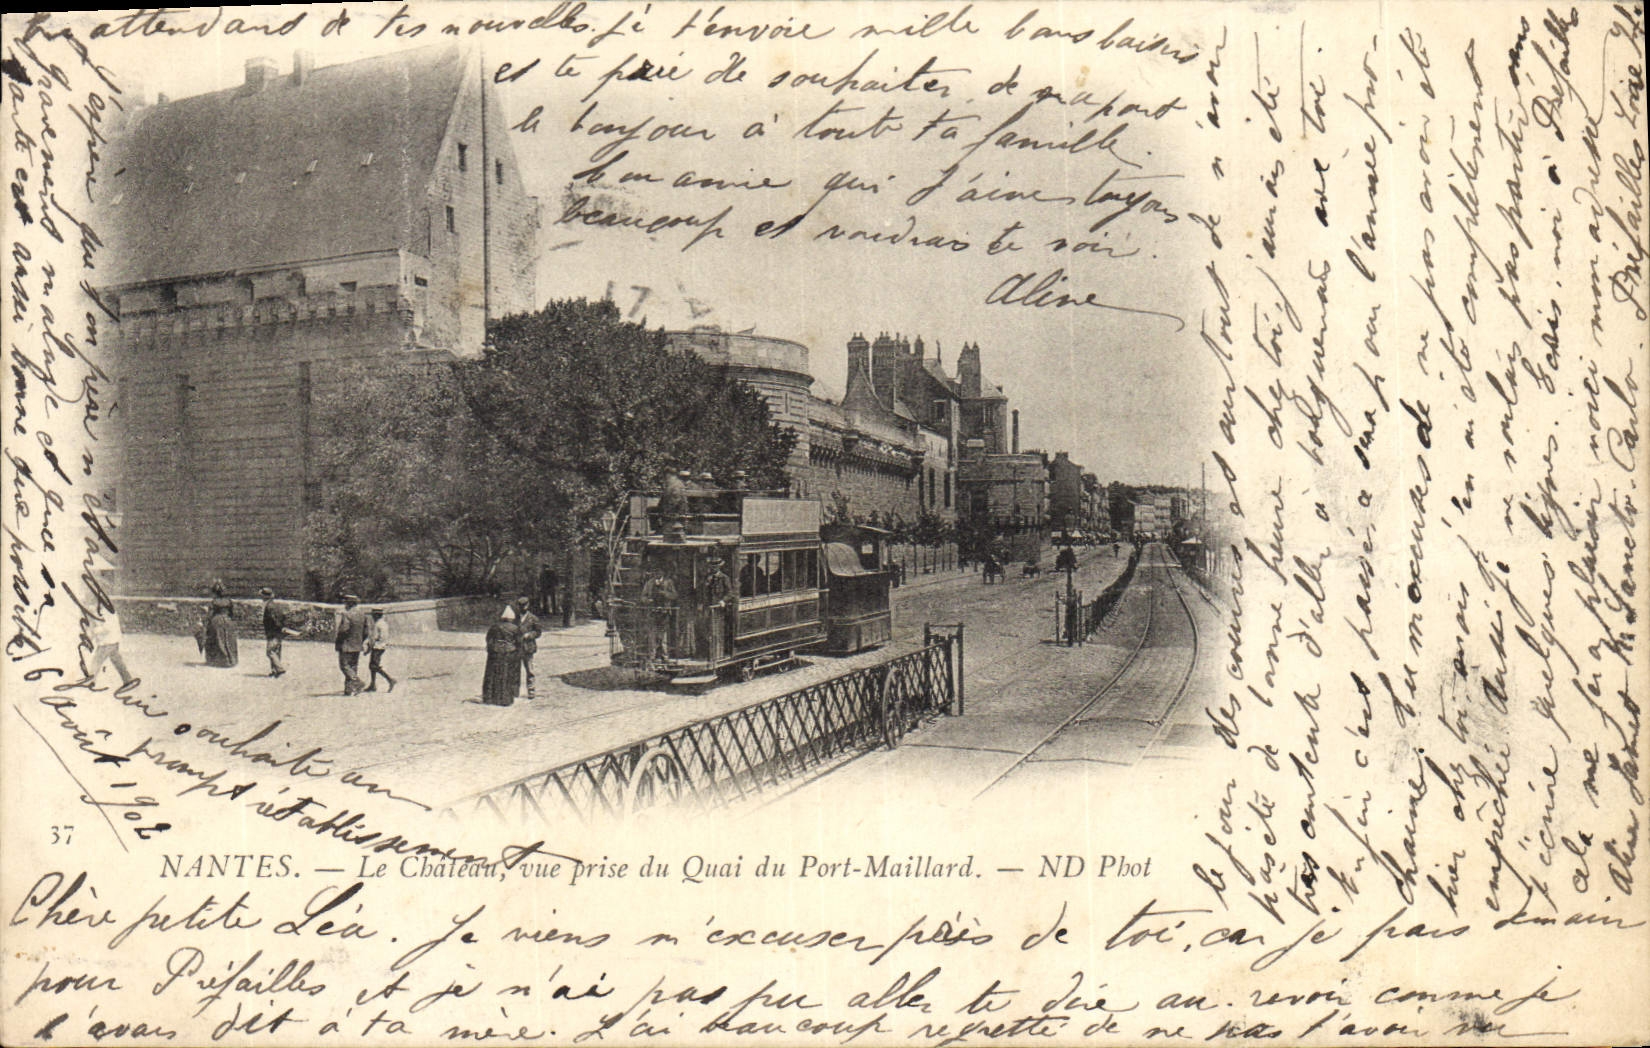 37
NANTES. — Le Château, vue prise du Quai du Port-Maillard. — ND Phot
Chère petite Léa. Je viens m'excuser près de toi, car je pars demain
pour Préfailles et je n'ai pas pu aller te dire au revoir comme je
l'avais dit à ta mère. J'ai beaucoup regretté de ne pas t'avoir vu
le jour des courses et surtout de n'avoir
passé de bonne heure chez toi, j'aurais été
très contente d'aller à Longuenais avec toi.
Enfin c'est passé, ce sera pour l'année pro-
chaine. Tu m'excuses de ne pas avoir été
hier chez toi, mais j'en ai été complètement
empêchée. Aussi je ne voulais pas partir sans
t'écrire quelques lignes. Ecris-moi à Préfailles
cela me fera plaisir voici mon adresse
Aline Préfailles Loire Inf
En attendant de tes nouvelles. Je t'envoie mille bons baisers
et te prie de souhaiter de ma part
le bonjour à toute ta famille.
Ton amie qui t'aime toujours
beaucoup et voudrais te voir.
Aline
J'espère que ton père n'est pas
gravement malade et que sa
santé est aussi bonne que possible
je lui souhaite un
prompt rétablissement
6 Août 1902